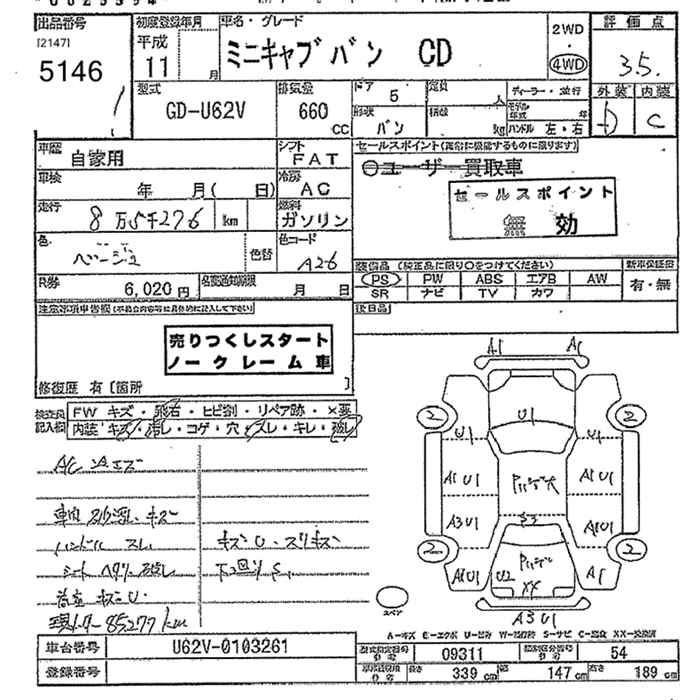 出品番号
[2147]
5146
初度登録年月
平成
11 月
車名・グレード
ミニキャブバン CD
2WD
・
4WD
評価点
3.5
型式
GD-U62V
排気量
660
CC
ドア
5
形状
バン
定員
人
積載
kg
ディーラー・並行
モデル年式 年
ハンドル 左・右
外装 内装
D C
車歴
自家用
シフト
FAT
車検
年 月( 日)
冷房
AC
走行
8万5千276 km
燃料
ガソリン
色
ベージュ
色替
色コード
A26
R券
6,020円
名変通知期限
月 日
セールスポイント(完全に機能するものに限ります)
○ユーザー買取車
セールスポイント
無効
装備品(純正品に限り○をつけてください)
PS PW ABS エアB AW
SR ナビ TV カワ
新車保証書
有・無
後日品
注意事項申告欄
売りつくしスタート
ノークレーム車
修復歴 有〔箇所 〕
検査員
記入欄
FW キズ・飛石・ヒビ割・リペア跡・×要
内装 キズ・汚レ・コゲ・穴・スレ・キレ・破レ
車内 キズ
ハンドル スレ
シート 破レ
現メーター 85277km
キズU・スリキズ
下回りS
A1
A1
2
2
U1
U1
U1
A1U1
A1U1
A3U1
A1U1
S3
2
2
A1U1
U2
XX
A1
A3U1
スペア
車台番号
U62V-0103261
登録番号
型式指定番号
09311
類別区分番号
54
長さ 339 cm
幅 147 cm
高さ 189 cm